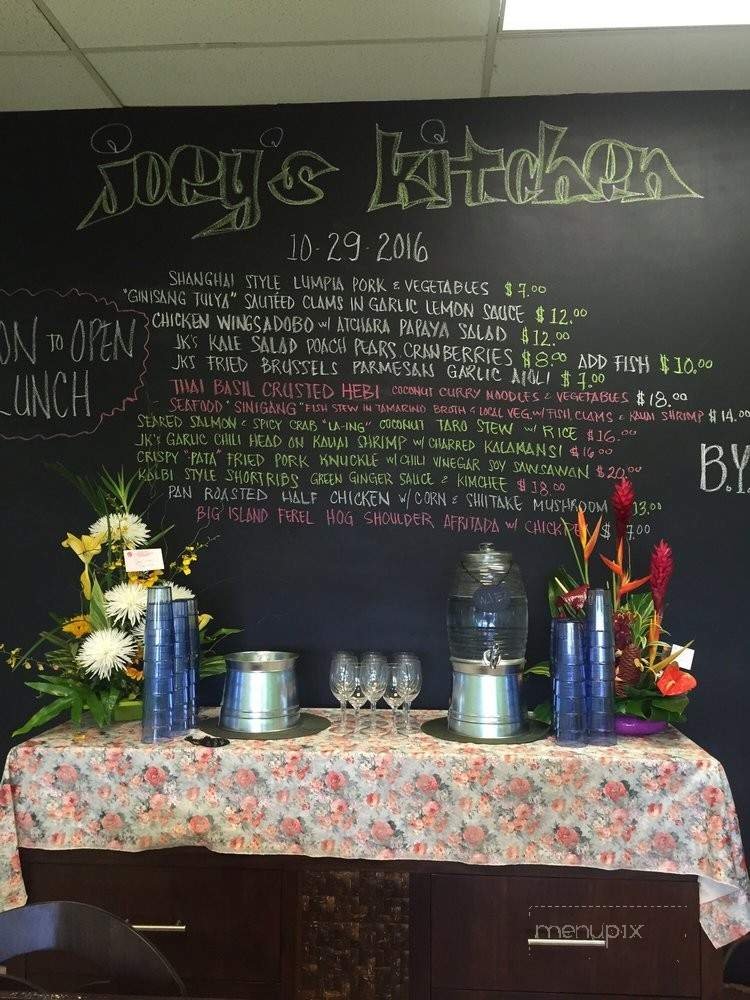 joey's kitchen
10-29-2016
SHANGHAI STYLE LUMPIA PORK & VEGETABLES $7.00
"GINISANG TULYA" SAUTÉED CLAMS IN GARLIC LEMON SAUCE $12.00
CHICKEN WINGS ADOBO w/ ATCHARA PAPAYA SALAD $12.00
JK'S KALE SALAD POACH PEARS, CRANBERRIES $8.00 ADD FISH $10.00
JK'S FRIED BRUSSELS PARMESAN GARLIC AIOLI $7.00
THAI BASIL CRUSTED HEBI COCONUT CURRY NOODLES & VEGETABLES $18.00
SEAFOOD "SINIGANG" FISH STEW IN TAMARIND BROTH & LOCAL VEG, W/ FISH, CLAMS & KAUAI SHRIMP $14.00
SEARED SALMON & SPICY CRAB "LA-ING" COCONUT TARO STEW w/ RICE $16.00
JK'S GARLIC CHILI HEAD ON KAUAI SHRIMP w/ CHARRED KALAMANSI $16.00
CRISPY "PATA" FRIED PORK KNUCKLE w/ CHILI VINEGAR SOY SAWSAWAN $20.00
KALBI STYLE SHORTRIBS GREEN GINGER SAUCE & KIMCHEE $18.00
PAN ROASTED HALF CHICKEN w/ CORN & SHIITAKE MUSHROOM 13.00
BIG ISLAND FEREL HOG SHOULDER AFRITADA w/ CHICKPE $ 7.00
ON TO OPEN
LUNCH
B.Y.
menupix